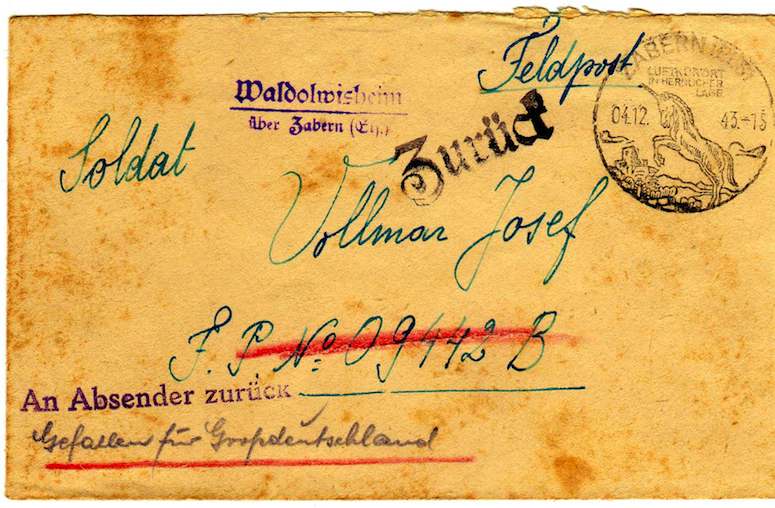 Feldpost
ZABERN
LUFTKURORT
IN HERRLICHER
LAGE
04.12. 43.-15
Waldolwisheim
über Zabern (Els.)
Zurück
Soldat
Vollmar Josef
F. P. No: 09442 B
An Absender zurück
Gefallen für Grossdeutschland